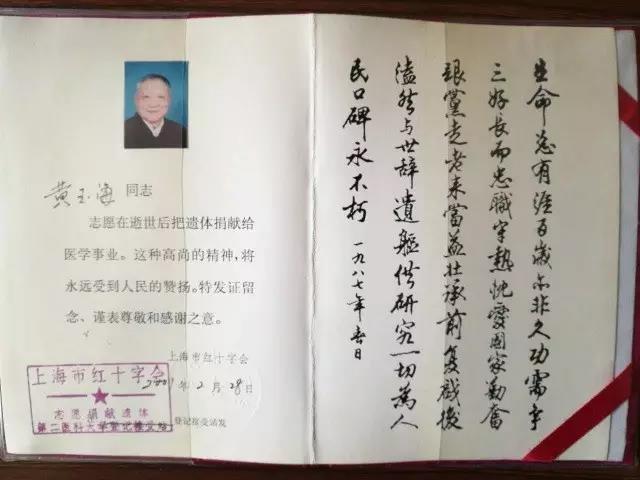 黄玉海 同志
志愿在逝世后把遗体捐献给
医学事业。这种高尚的精神，将
永远受到人民的赞扬。特发证留
念、谨表尊敬和感谢之意。
上海市红十字会
2001年2月28日
登记接受站发
上海市红十字会
志愿捐献遗体
第二医科大学登记接受站
生命总有涯百岁亦非久幼需争
三好長而忠職守熱忱愛國家勤奮
跟黨走老来當益壮承前复啟後
溘然与世辞遺軀供研究一切為人
民口碑永不朽 一九八七年春日